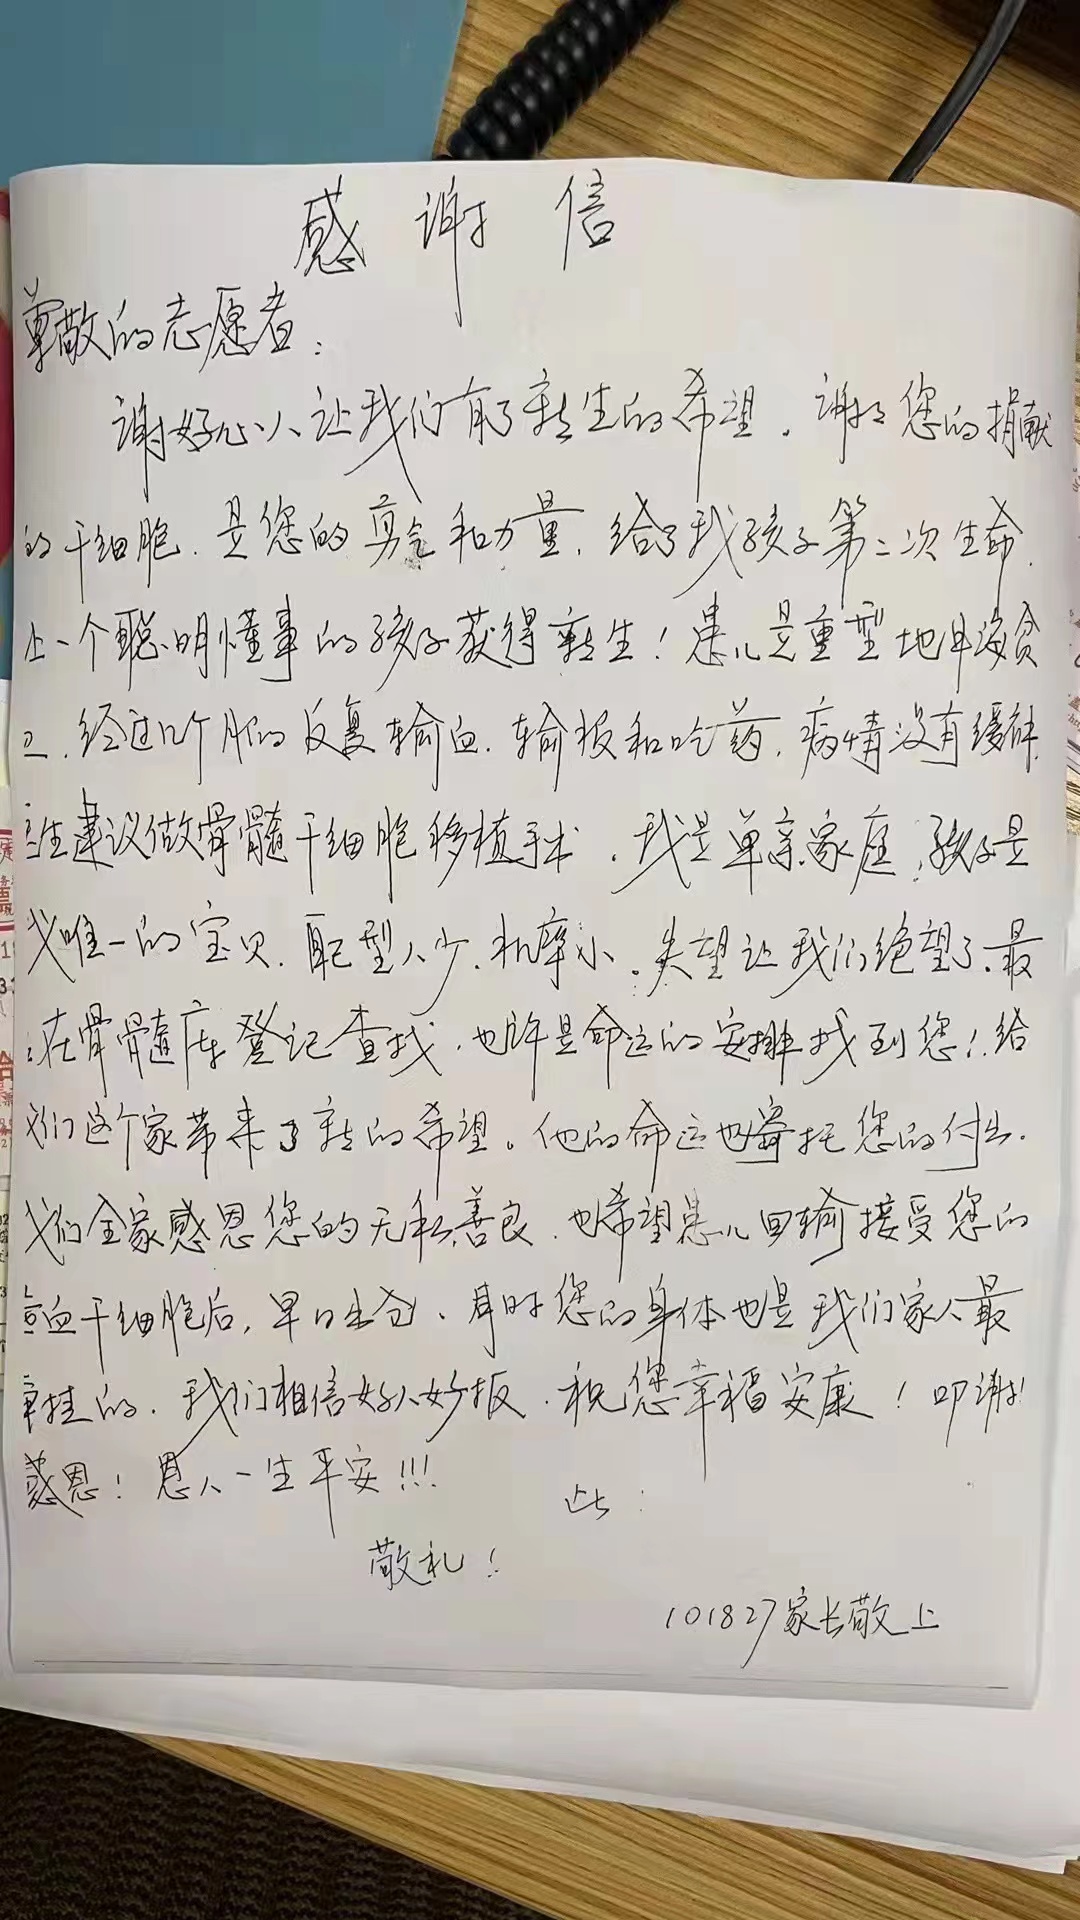 感谢信
尊敬的志愿者:
谢好心人让我们有了新生的希望。谢谢您的捐献
的干细胞.是您的勇气和力量,给了我孩子第二次生命.
上一个聪明懂事的孩子获得新生!患儿是重型地中海贫
经过几个月的反复输血.输板和吃药,病情没有缓解
生建议做骨髓干细胞移植手术.我是单亲家庭,孩子是
我唯一的宝贝.配型人少.机率小。失望让我们绝望了.最
在骨髓库登记查找.也许是命运的安排找到您!给
我们这个家带来了新的希望。他的命运也寄托您的付出.
我们全家感恩您的无私善良.也希望患儿回输接受您的
血干细胞后,早日出仓、有时您的身体也是我们家人最
挂的.我们相信好人好报.祝您幸福安康!叩谢
感恩!恩人一生平安!!!
此:
敬礼!
101827家长敬上